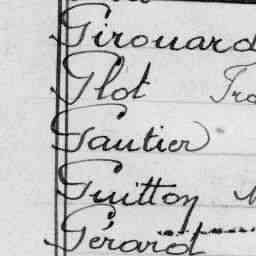 Girouard
Glot Fra
Gautier
Guitton
Gérard